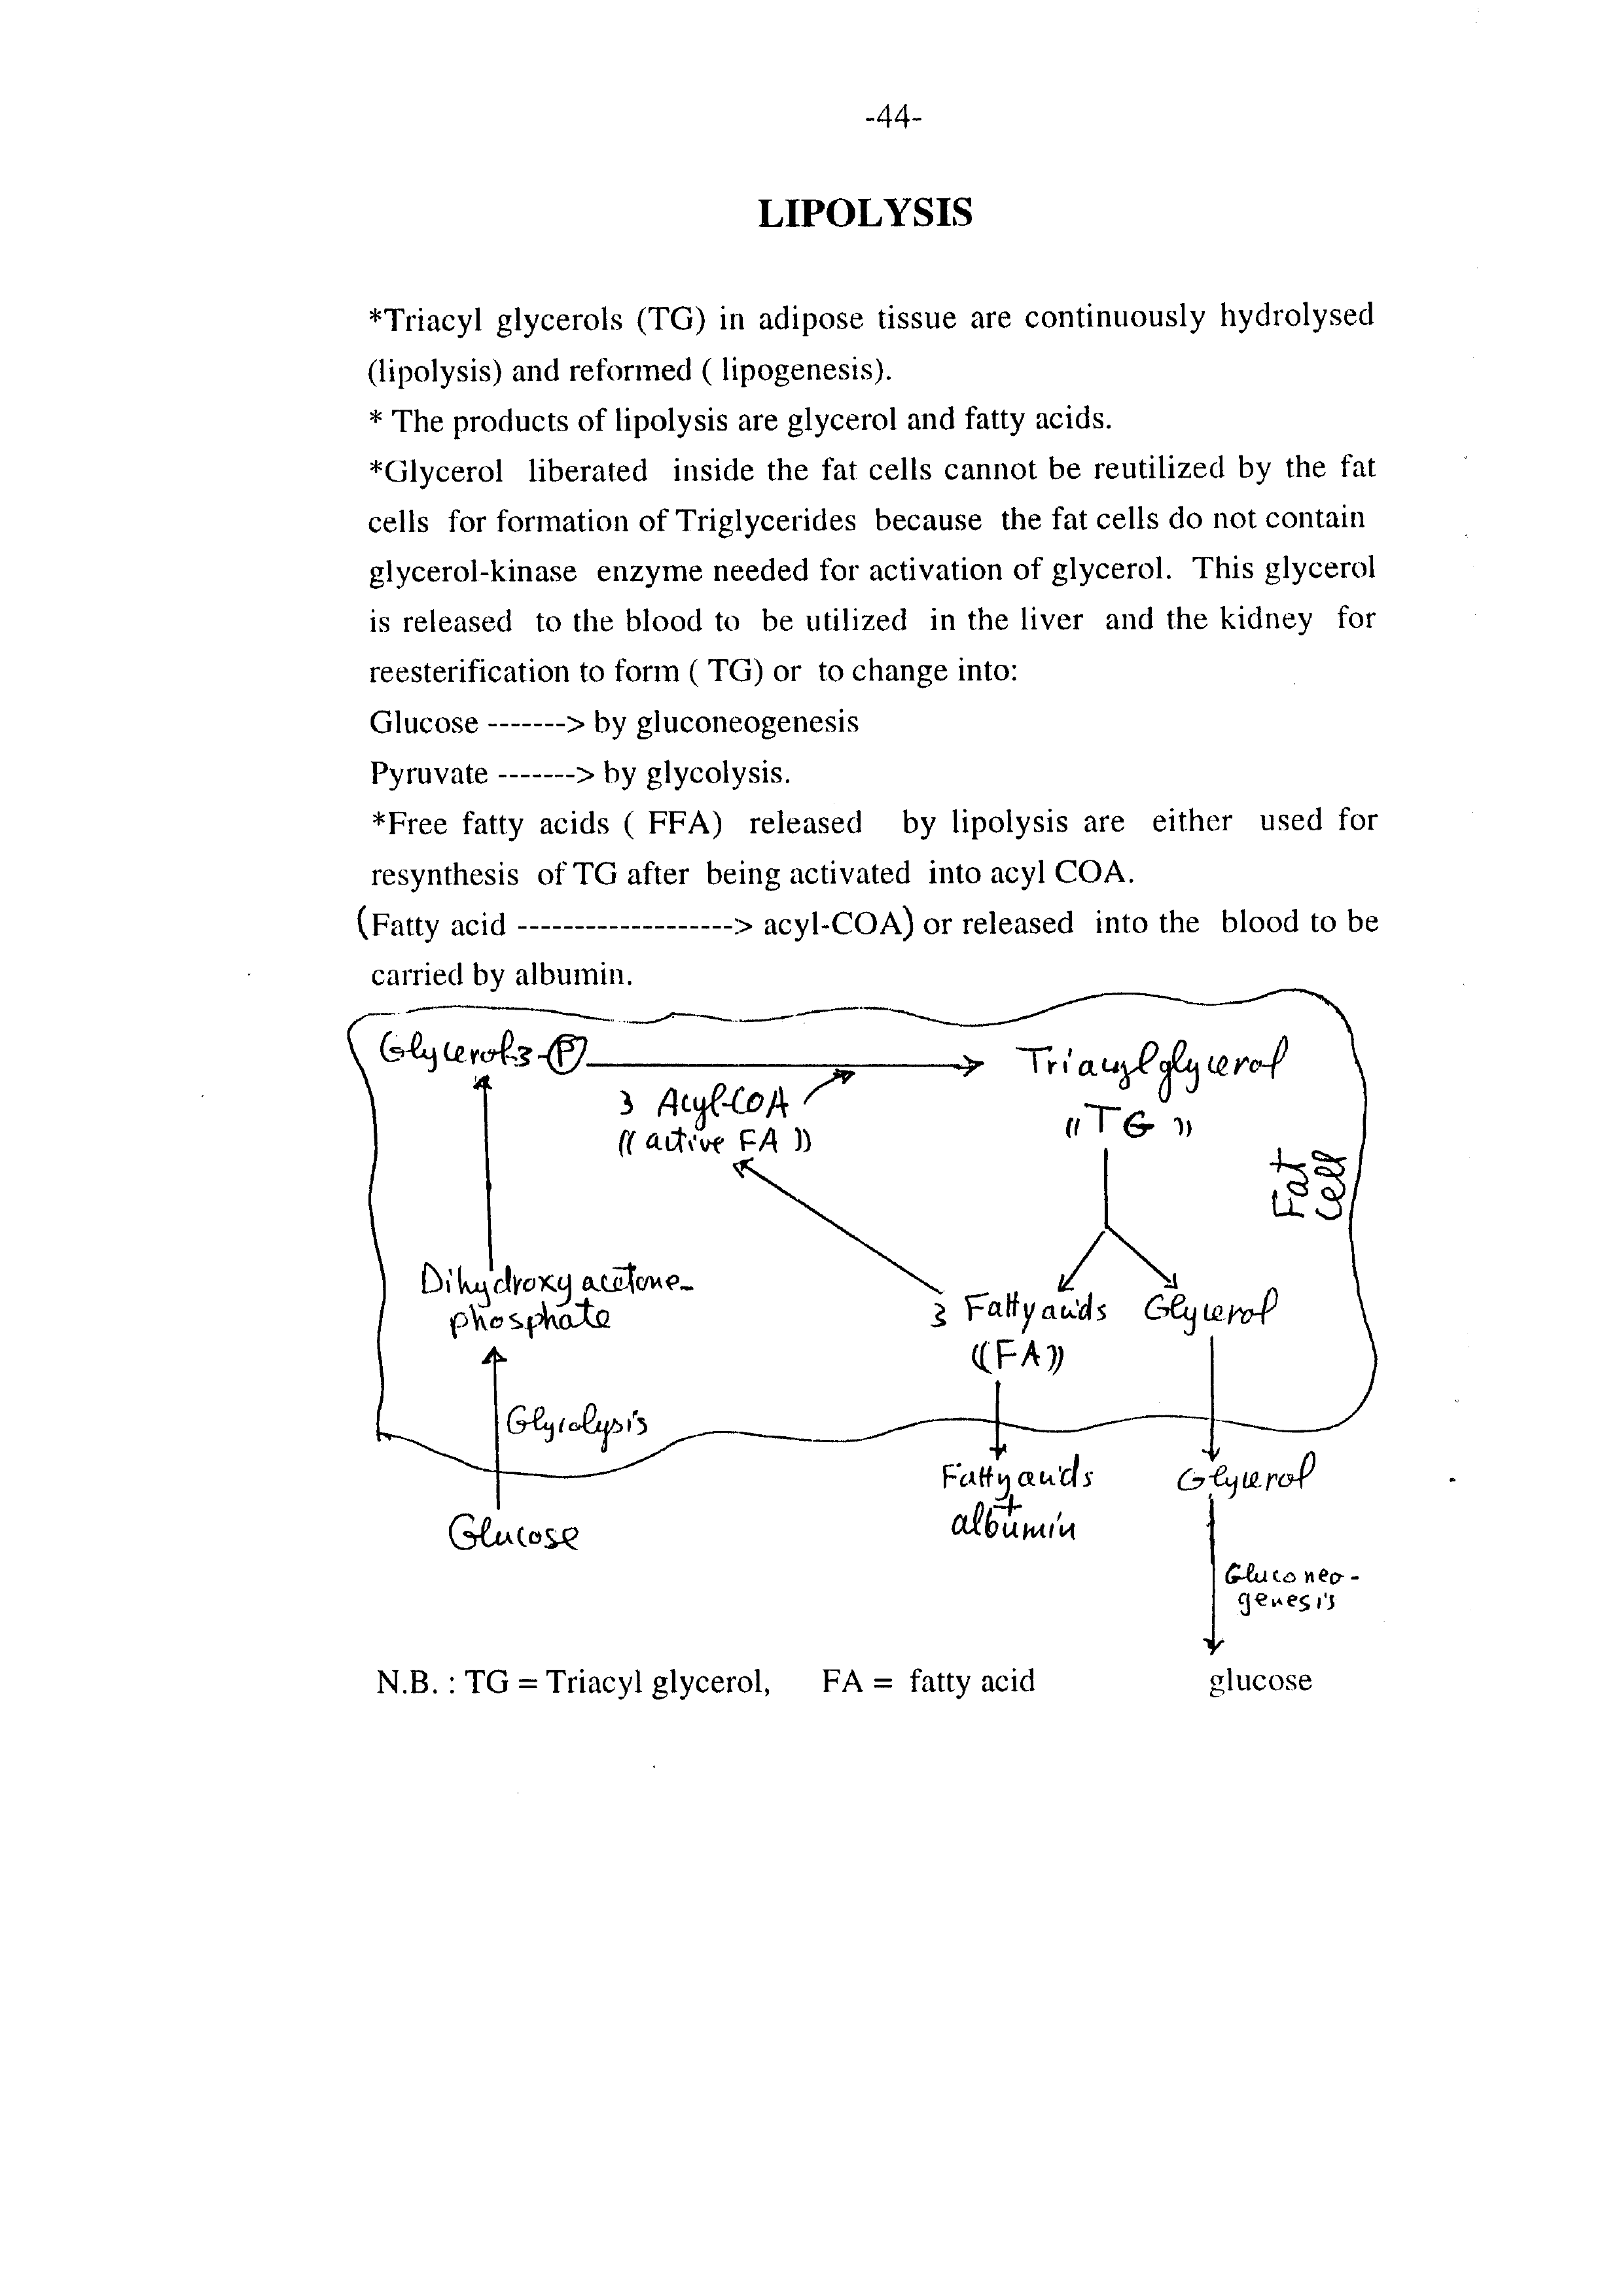 -44-
LIPOLYSIS
*Triacyl glycerols (TG) in adipose tissue are continuously hydrolysed
(lipolysis) and reformed ( lipogenesis).
* The products of lipolysis are glycerol and fatty acids.
*Glycerol liberated inside the fat cells cannot be reutilized by the fat
cells for formation of Triglycerides because the fat cells do not contain
glycerol-kinase enzyme needed for activation of glycerol. This glycerol
is released to the blood to be utilized in the liver and the kidney for
reesterification to form ( TG) or to change into:
Glucose -------> by gluconeogenesis
Pyruvate -------> by glycolysis.
*Free fatty acids ( FFA) released by lipolysis are either used for
resynthesis of TG after being activated into acyl COA.
(Fatty acid -------------------> acyl-COA) or released into the blood to be
carried by albumin.
Glycerol-3-P
Triacylglycerol
3 Acyl-COA
((active FA))
((TG))
Fat
cell
Dihydroxyacetone-
phosphate
3 Fatty acids
Glycerol
((FA))
Glycolysis
Fatty acids
+
albumin
Glycerol
Glucose
Gluconeo-
genesis
N.B. : TG = Triacyl glycerol, FA = fatty acid
glucose